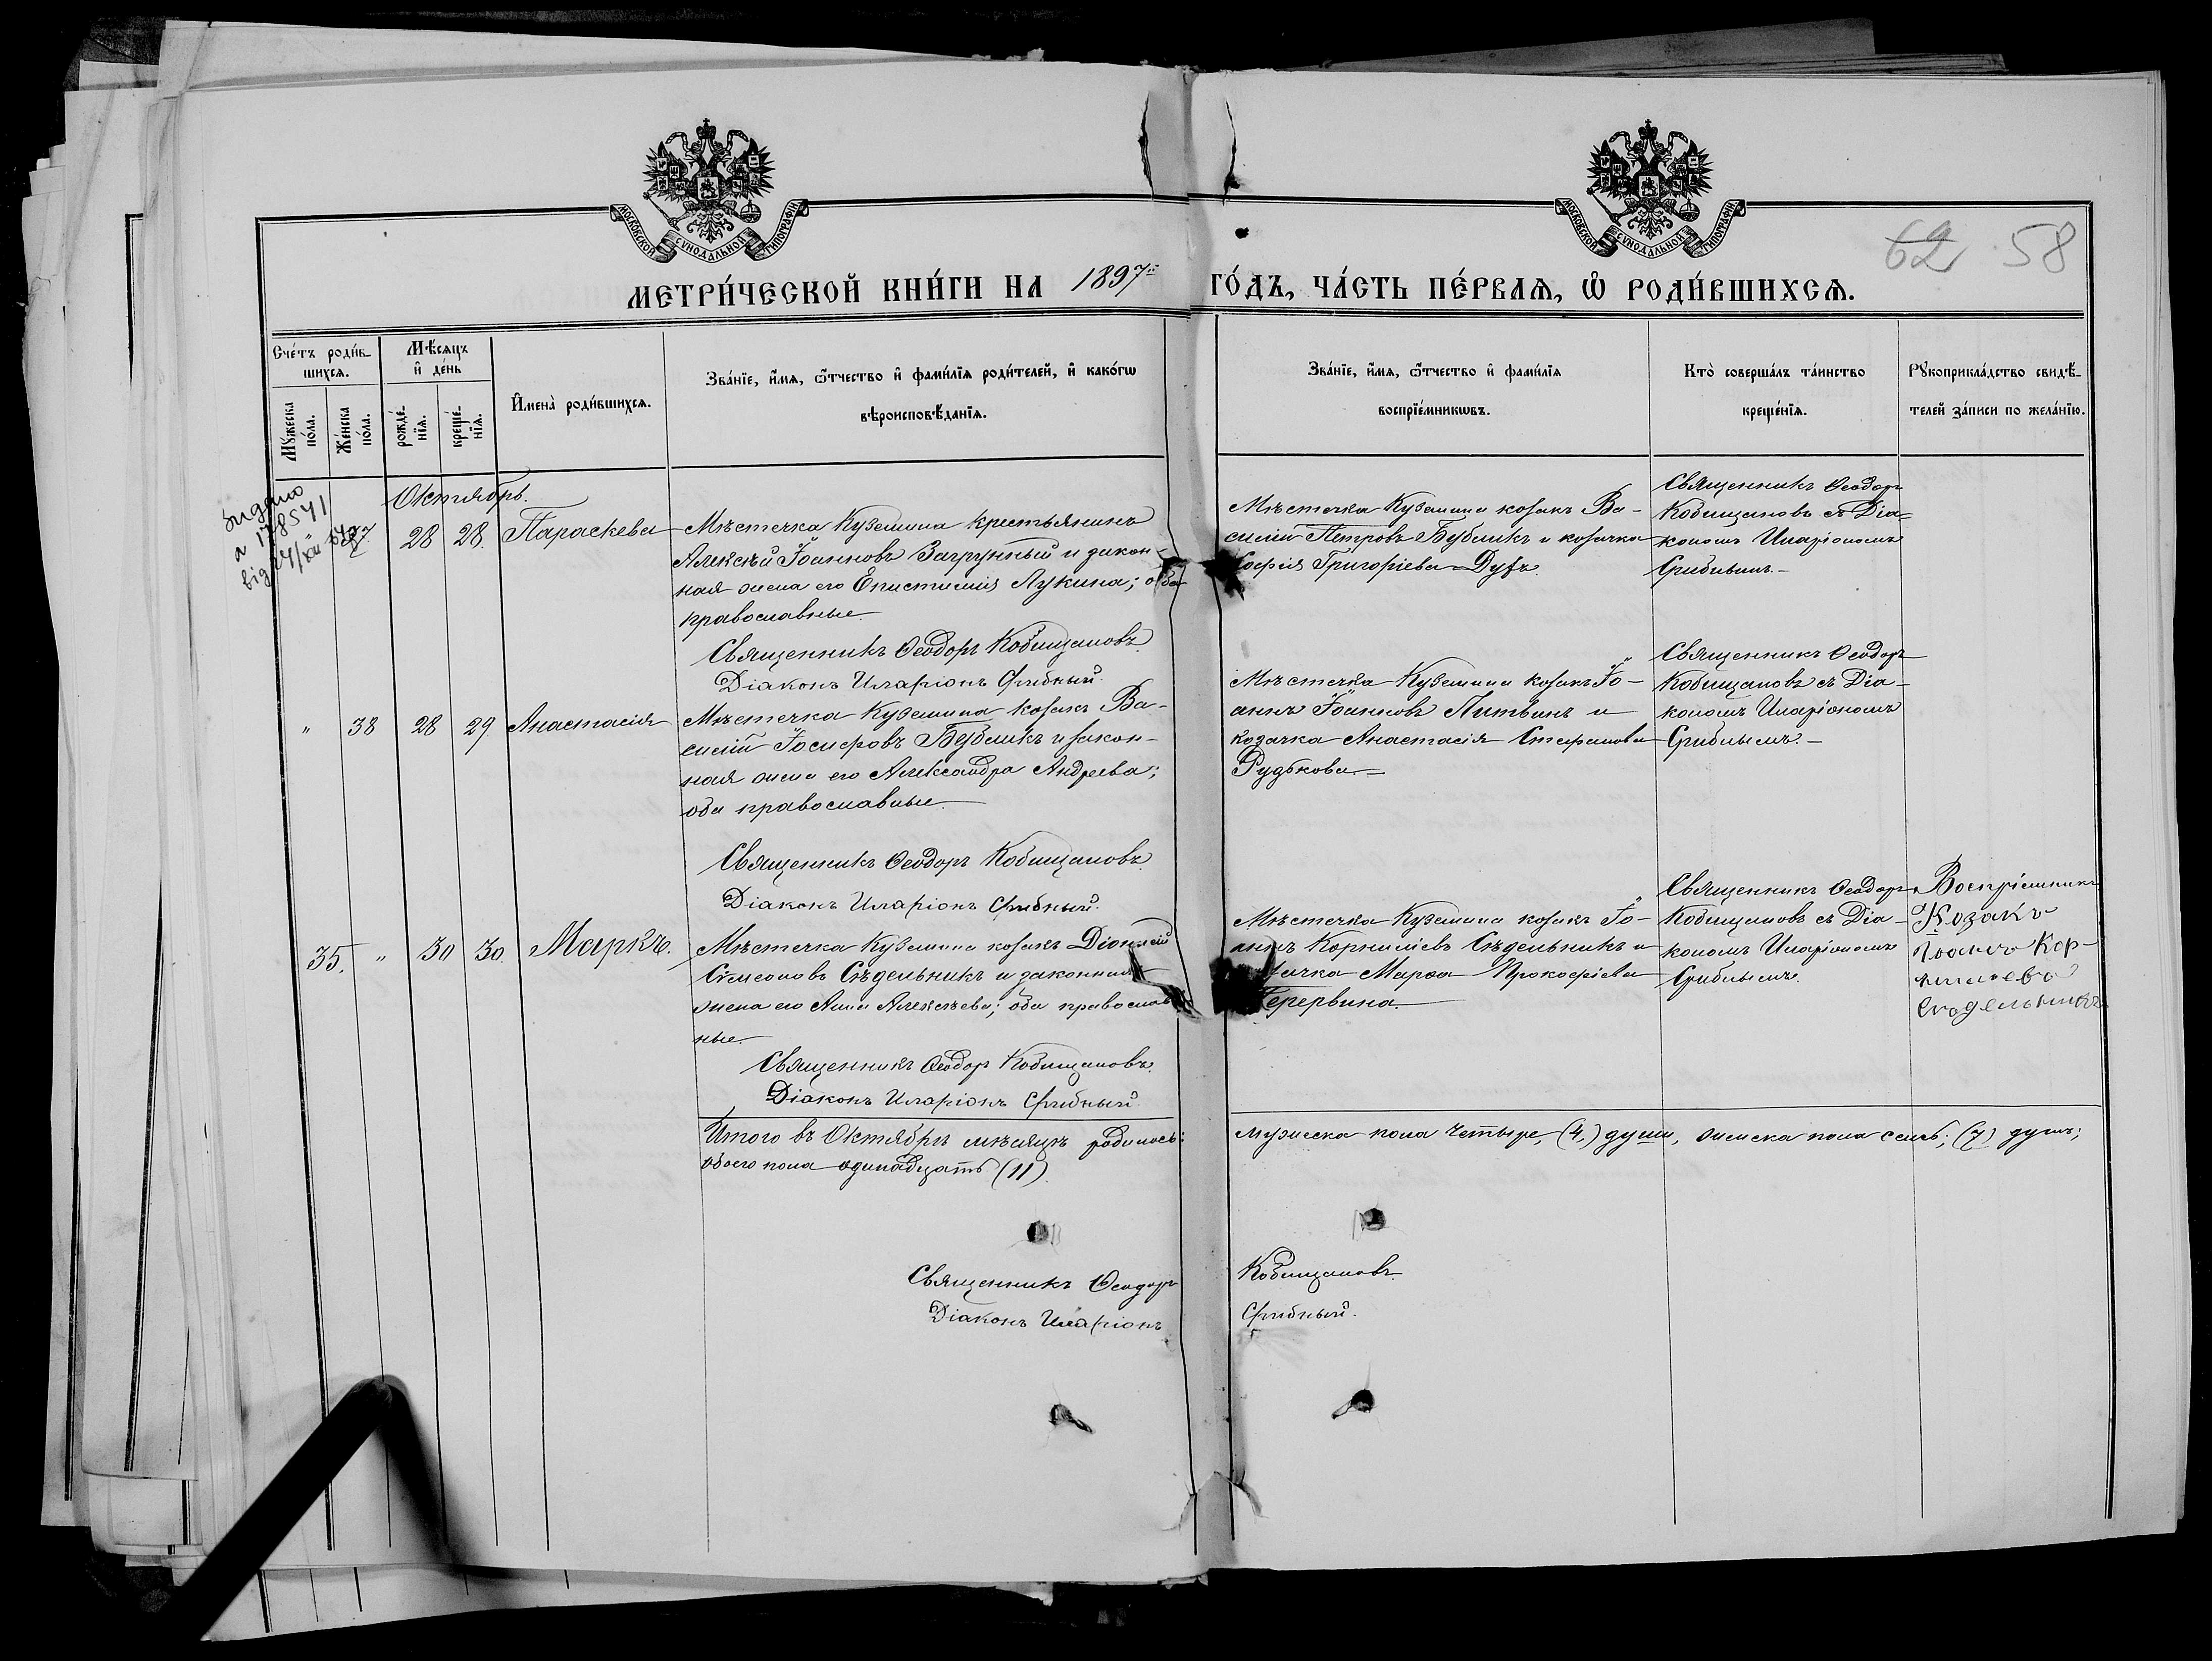 МОСКОВСКОЙ СѴНОДАЛЬНОЙ ТИПОГРАФІИ
МОСКОВСКОЙ СѴНОДАЛЬНОЙ ТИПОГРАФІИ
62 58
МЕТРИ́ЧЕСКОЙ КНИ́ГИ НА 1897й ГО́ДЪ, ЧА́СТЬ ПЕ́РВАЯ, Ѽ РОДИ́ВШИХСЯ.
Сче́тъ роди́в-
шихся.
Мꙋ́жеска по́ла.
Же́нска по́ла.
Мѣ́сяцъ и҆ де́нь
рожде́-нїя.
креще́-нїя.
И҆мена̀ роди́вшихся.
Зва́нїе, и҆́мя, ѻ҆́тчество и҆ фами́лїя роди́телей, и҆ како́гѡ
вѣроисповѣ́данїя.
Зва́нїе, и҆́мя, ѻ҆́тчество и҆ фами́лїя
воспрїе́мникѡвъ.
Кто̀ соверша́лъ та́инство
креще́нїя.
Рꙋкоприкла́дство свидѣ́-
телей за́писи по жела́нїю.
Октябрь.
37 28 28. Параскева
Мѣстечка Куземина крестьянинъ
Алексѣй Іоанновъ Загрунный и закон-
ная жена его Епистимія Лукина; оба
православные.
Священникъ Ѳеодоръ Кобищановъ
Діаконъ Иларіонъ Срибный.
Мѣстечка Куземина козакъ Ва-
силій Петровъ Бубликъ и козачка
Софія Григоріева Дубъ.
Священникъ Ѳеодоръ
Кобищановъ съ Діа-
кономъ Иларіономъ
Срибнымъ.-
" 38 28 29 Анастасія
Мѣстечка Куземина козакъ Ва-
силій Іосифовъ Бубликъ и закон-
ная жена его Александра Андреева;
оба православные.
Священникъ Ѳеодоръ Кобищановъ
Діаконъ Иларіонъ Срибный.
Мѣстечка Куземина козакъ Іо-
аннъ Іоанновъ Литвинъ и
козачка Анастасія Стефанова
Рудькова.-
Священникъ Ѳеодоръ
Кобищановъ съ Діа-
кономъ Иларіономъ
Срибнымъ.-
35. " 30 30. Маркъ.
Мѣстечка Куземина козакъ Діонисій
Симеоновъ Сѣдельникъ и законная
жена его Анна Алексѣева; оба православ
ные.
Священникъ Ѳеодоръ Кобищановъ.
Діаконъ Иларіонъ Срибный.
Мѣстечка Куземина козакъ Іо-
аннъ Корниліевъ Сѣдельникъ и
Марѳа Прокофіева
Перервина.
Священникъ Ѳеодоръ
Кобищановъ съ Діа-
кономъ Иларіономъ
Срибнымъ.
Воспріемникъ
Козакъ
Іоанъ Кор-
Сѣдельникъ
Итого въ Октябрѣ мѣсяцѣ родилось: мужеска пола четыре, (4,) души, женска пола семь; (7) душъ;
обоего пола одинадцать (11).
Священникъ Ѳеодоръ Кобищановъ.
Діаконъ Иларіонъ Срибный.